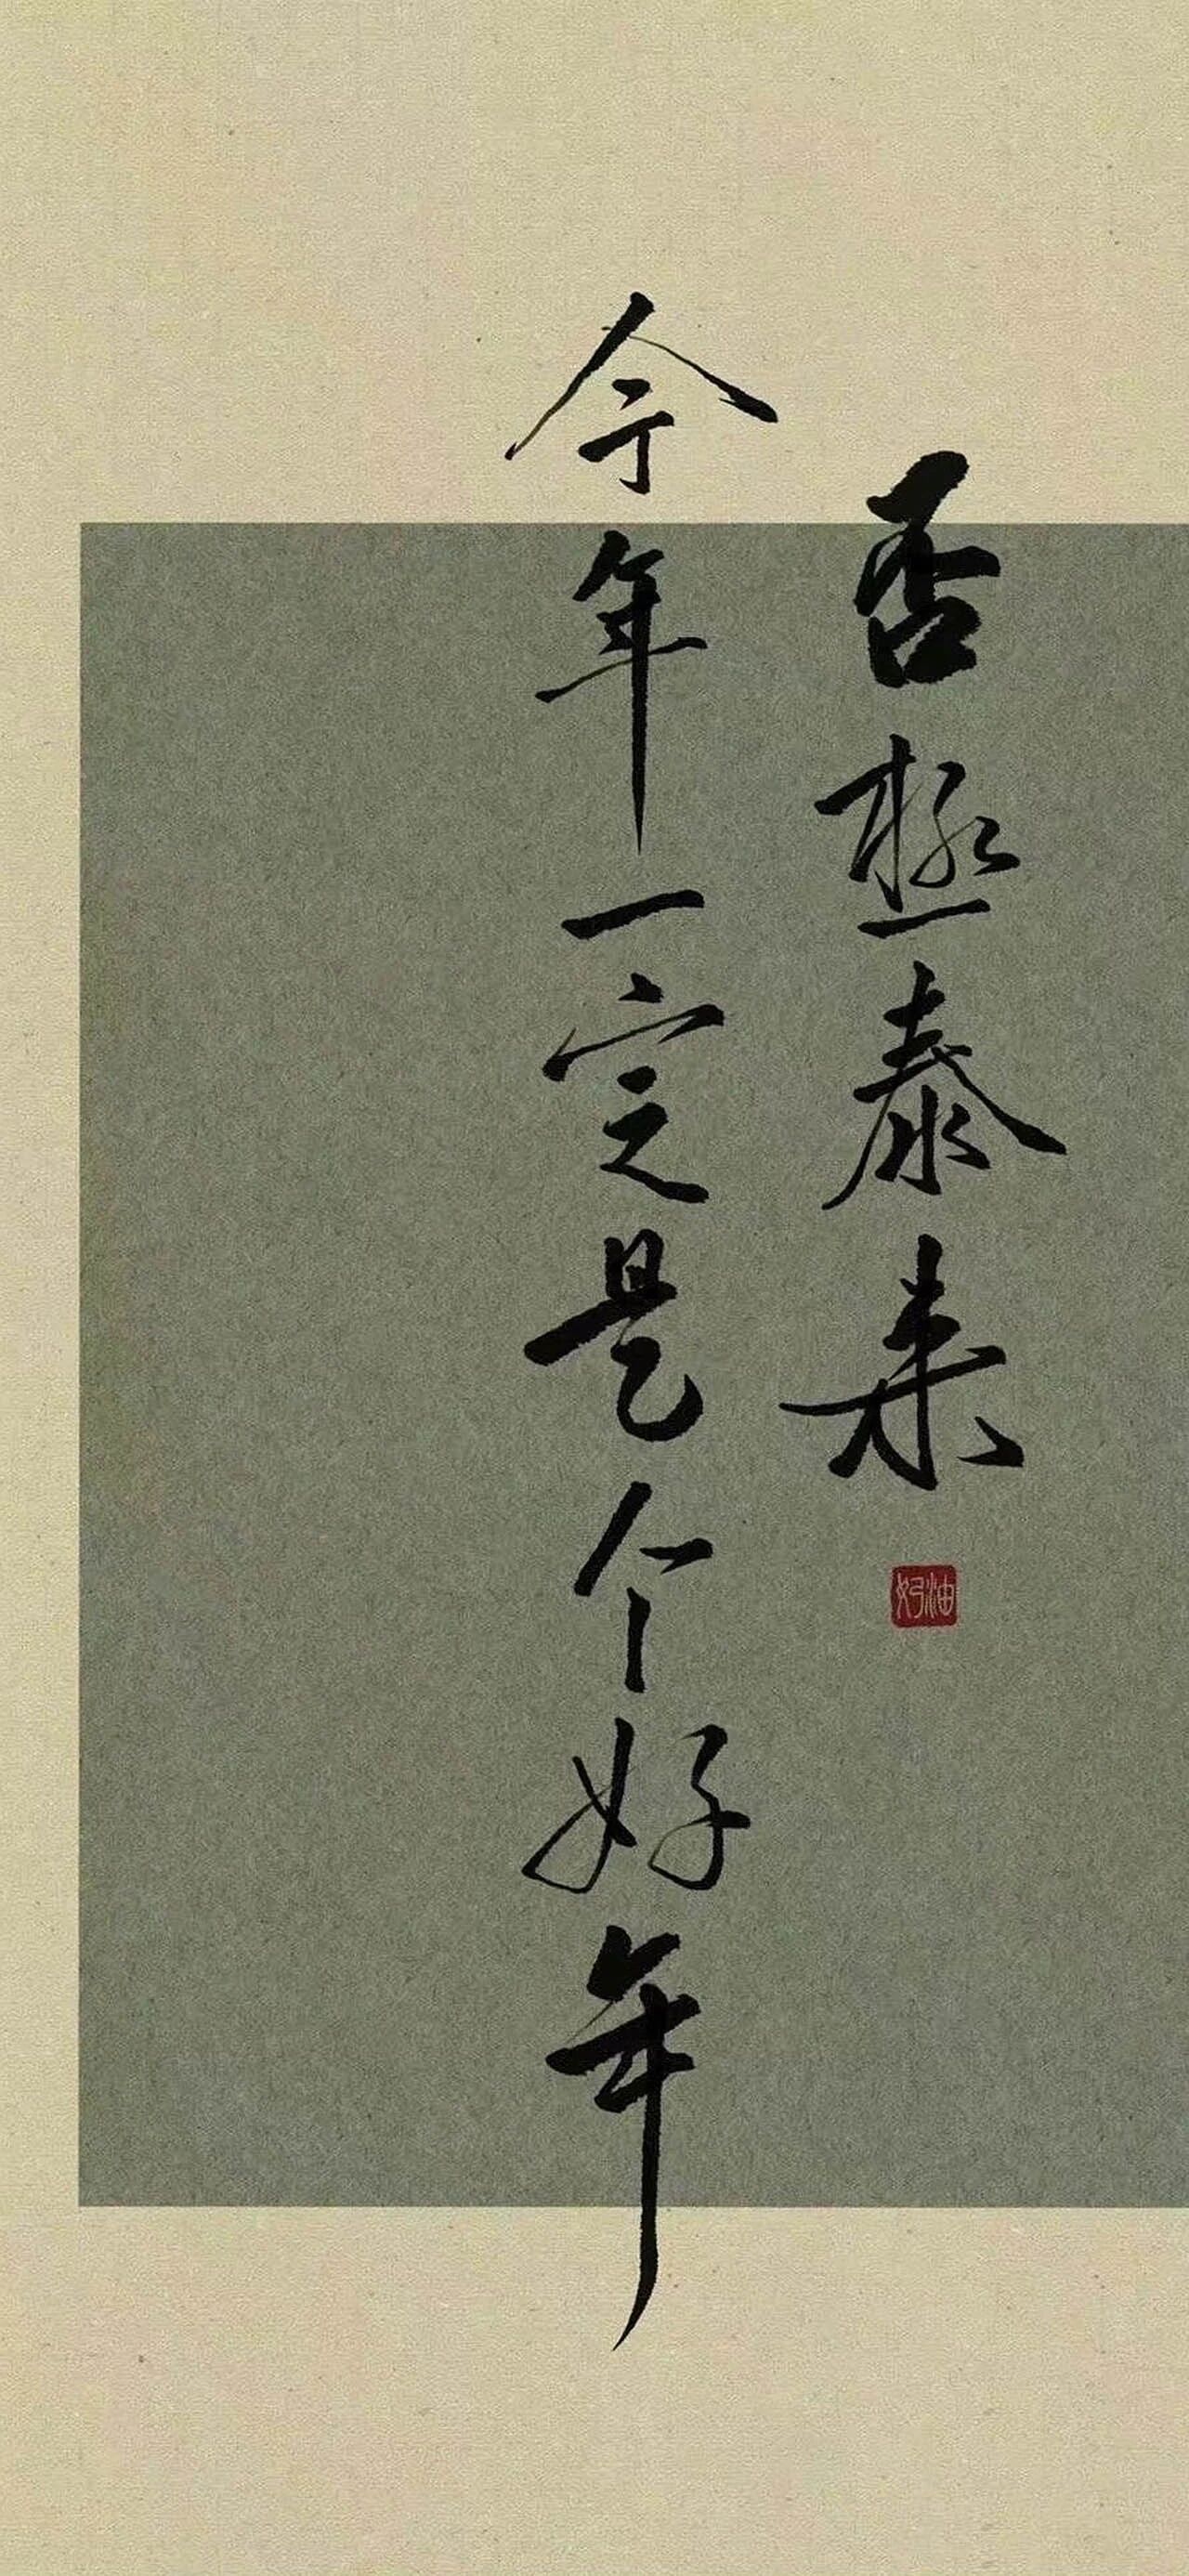 否極泰来
今年一定是个好年
好油